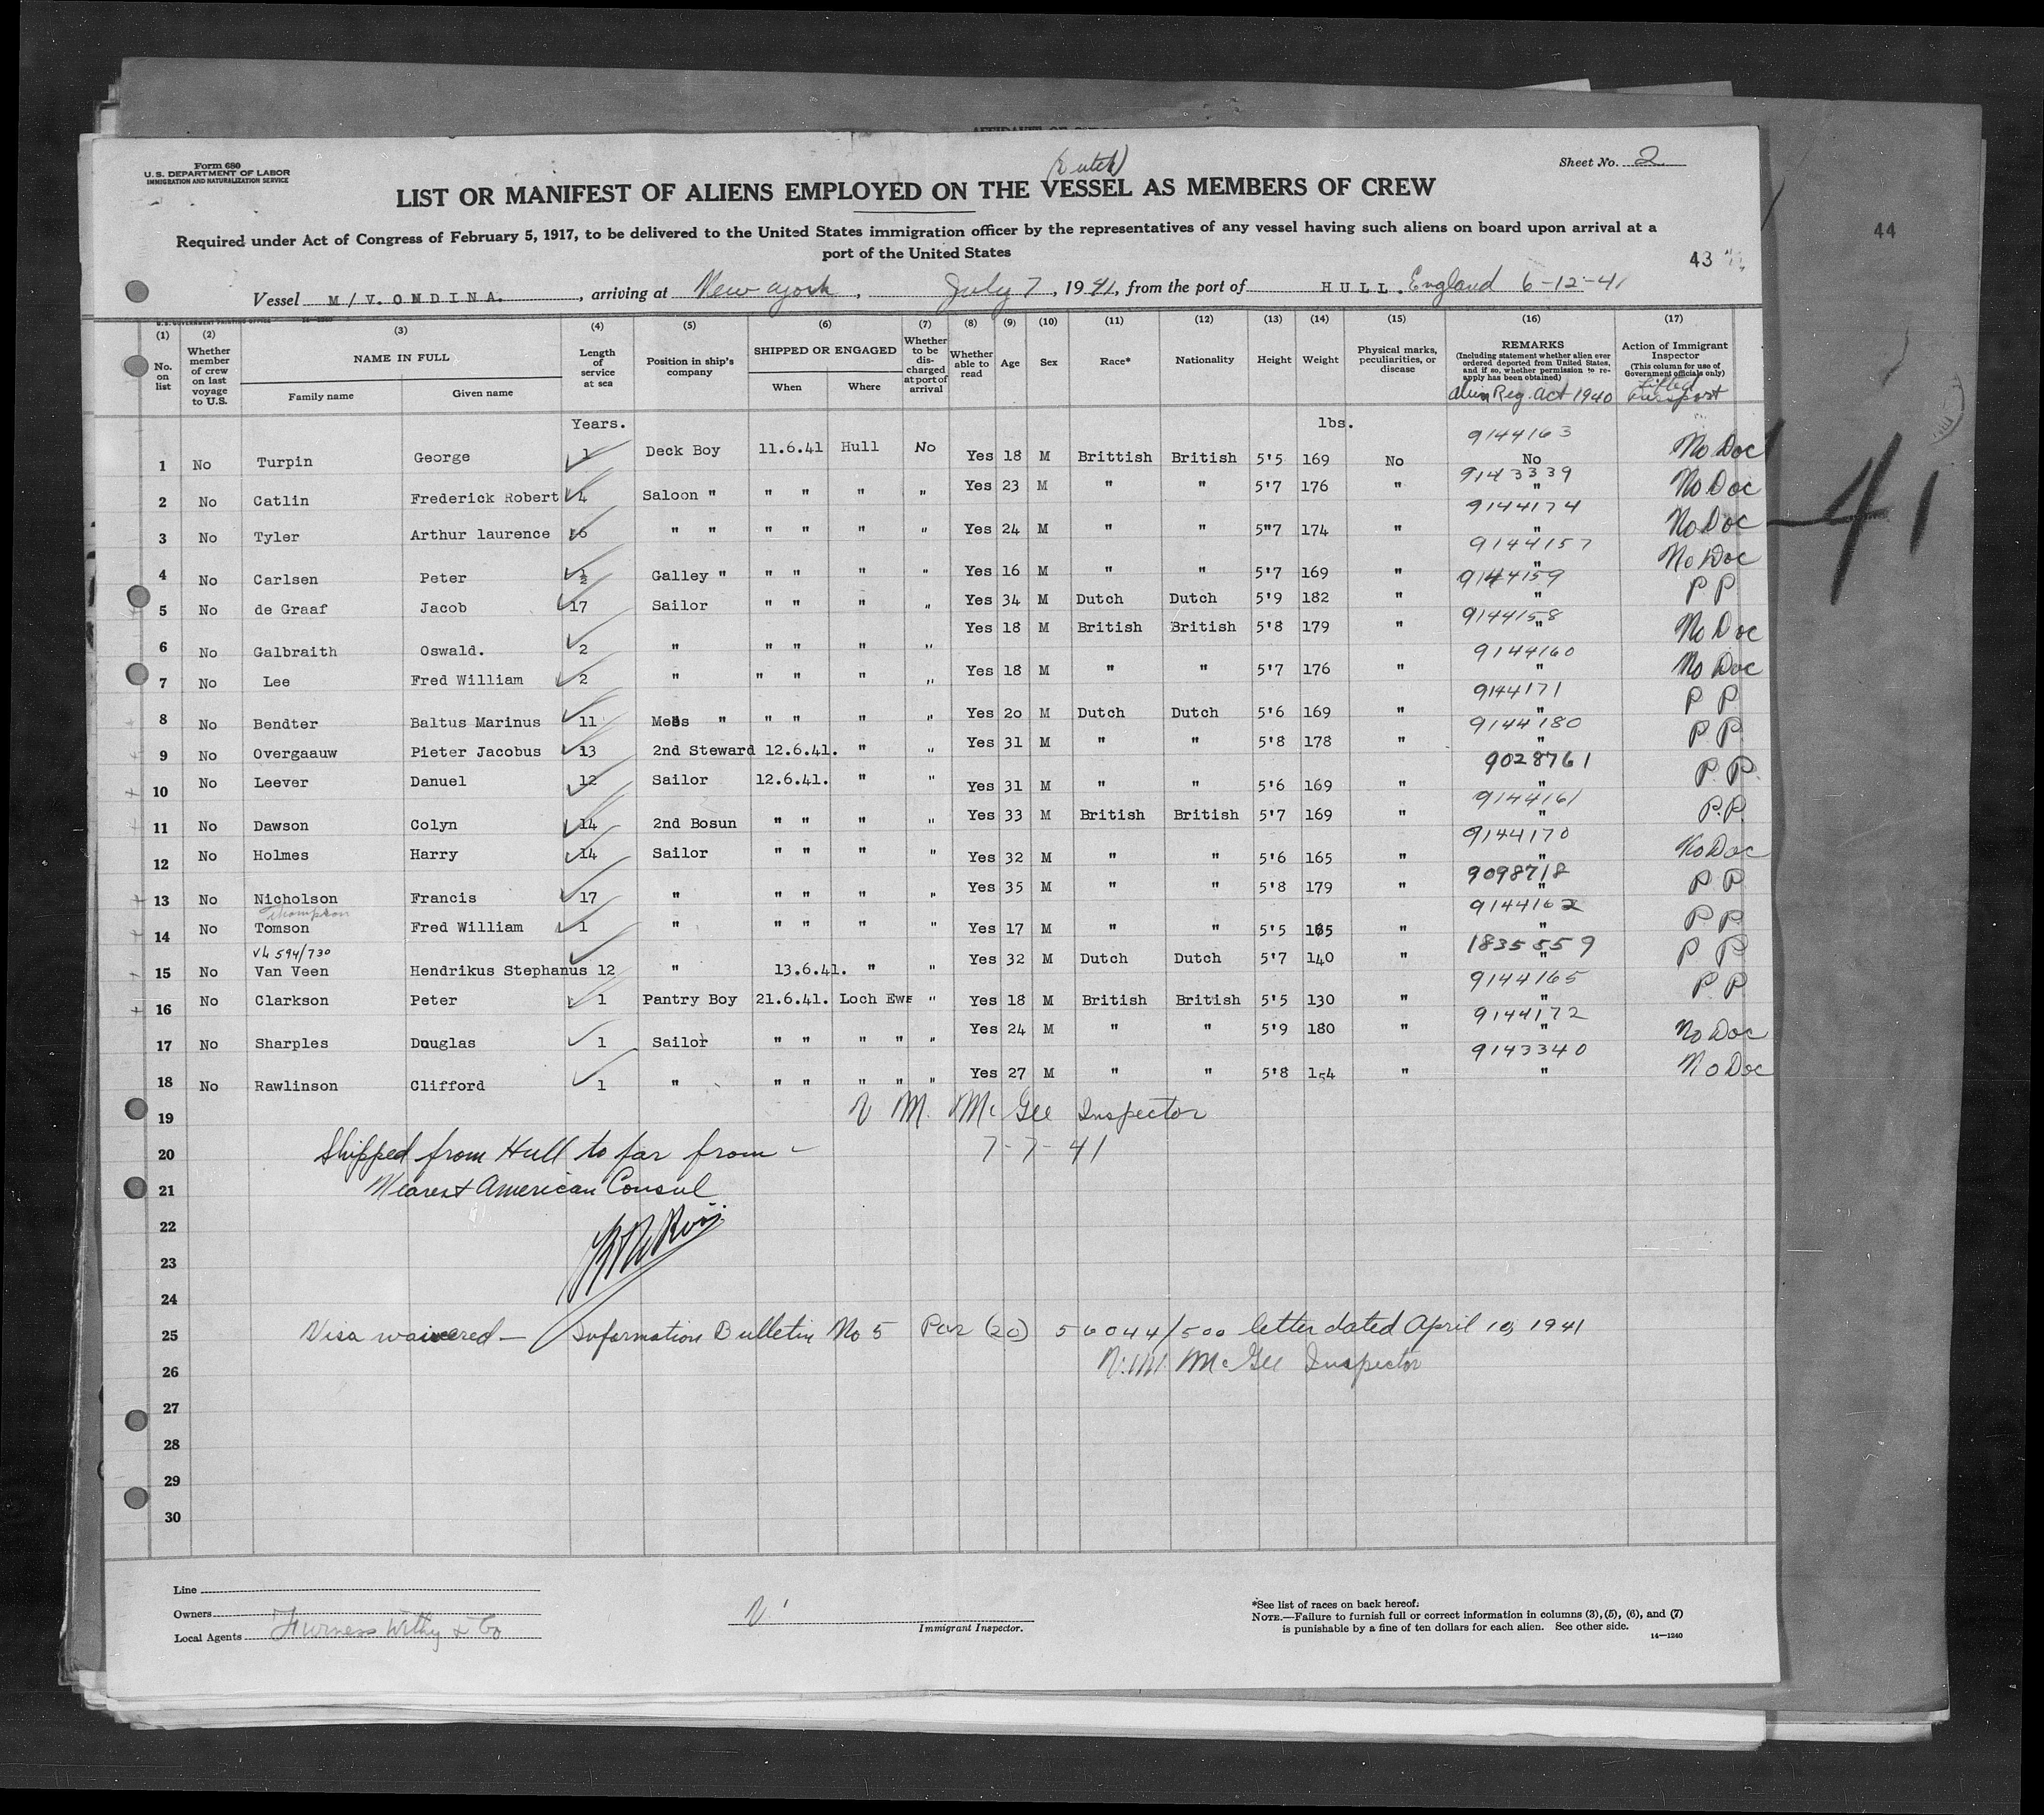 Form 680
U.S. DEPARTMENT OF LABOR
IMMIGRATION AND NATURALIZATION SERVICE
Sheet No. 2
(Dutch)
LIST OR MANIFEST OF ALIENS EMPLOYED ON THE VESSEL AS MEMBERS OF CREW
Required under Act of Congress of February 5, 1917, to be delivered to the United States immigration officer by the representatives of any vessel having such aliens on board upon arrival at a
port of the United States
44
43
Vessel M/V. ONDINA. , arriving at New York , July 7 , 1941, from the port of HULL. England 6-12-41
U.S. GOVERNMENT PRINTING OFFICE
(1) (2) (3) (4) (5) (6) (7) (8) (9) (10) (11) (12) (13) (14) (15) (16) (17)
No. on list Whether member of crew on last voyage to U.S. NAME IN FULL Family name Given name Length of service at sea Position in ship's company SHIPPED OR ENGAGED When Where Whether to be discharged at port of arrival Whether able to read Age Sex Race* Nationality Height Weight Physical marks, peculiarities, or disease REMARKS (Including statement whether alien ever ordered deported from United States, and if so, whether permission to reapply has been obtained) Action of Immigrant Inspector (This column for use of Government officials only)
Alien Reg. Act 1940 Lifted Passport
Years. lbs.
1 No Turpin George 1 Deck Boy 11.6.41 Hull No Yes 18 M Brittish British 5'5 169 No 9144163 No No Doc
2 No Catlin Frederick Robert 4 Saloon " " " " " Yes 23 M " " 5'7 176 " 9143339 " No Doc
3 No Tyler Arthur laurence 6 " " " " " " Yes 24 M " " 5"7 174 " 9144174 " No Doc
4 No Carlsen Peter ½ Galley " " " " " Yes 16 M " " 5'7 169 " 9144157 " No Doc
5 No de Graaf Jacob 17 Sailor " " " " Yes 34 M Dutch Dutch 5'9 182 " 9144159 " P P
6 No Galbraith Oswald. 2 " " " " " Yes 18 M British British 5'8 179 " 9144158 " No Doc
7 No Lee Fred William 2 " " " " " Yes 18 M " " 5'7 176 " 9144160 " No Doc
8 No Bendter Baltus Marinus 11 Mess " " " " " Yes 2o M Dutch Dutch 5'6 169 " 9144171 " P P
9 No Overgaauw Pieter Jacobus 13 2nd Steward 12.6.41. " " Yes 31 M " " 5'8 178 " 9144180 " P P
10 No Leever Danuel 12 Sailor 12.6.41. " " Yes 31 M " " 5'6 169 " 9028761 " P. P.
11 No Dawson Colyn 14 2nd Bosun " " " " Yes 33 M British British 5'7 169 " 9144161 " P.P.
12 No Holmes Harry 14 Sailor " " " " Yes 32 M " " 5'6 165 " 9144170 " No Doc
13 No Nicholson Francis 17 " " " " " Yes 35 M " " 5'8 179 " 9098718 " P P
Thompson
14 No Tomson Fred William 1 " " " " " Yes 17 M " " 5'5 165 " 9144162 " P P
VL 594/730
15 No Van Veen Hendrikus Stephanus 12 " 13.6.41. " " Yes 32 M Dutch Dutch 5'7 140 " 1835559 " P P
16 No Clarkson Peter 1 Pantry Boy 21.6.41. Loch Ewe " Yes 18 M British British 5'5 130 " 9144165 " P P
17 No Sharples Douglas 1 Sailor " " " " " Yes 24 M " " 5'9 180 " 9144172 " No Doc
18 No Rawlinson Clifford 1 " " " " " " Yes 27 M " " 5'8 154 " 9143340 " No Doc
41
19 V M. McGee Inspector
20 Shipped from Hull to far from - 7-7-41
21 Nearest American Consul
22
23
24
25 Visa waivered - Information Bulletin No 5 Par (20) 56044/500 letter dated April 10, 1941
26 V.M. McGee Inspector
27
28
29
30
Line
Owners
Local Agents Furness Withy & Co
Immigrant Inspector.
*See list of races on back hereof.
NOTE.—Failure to furnish full or correct information in columns (3), (5), (6), and (7)
is punishable by a fine of ten dollars for each alien. See other side.
14—1240